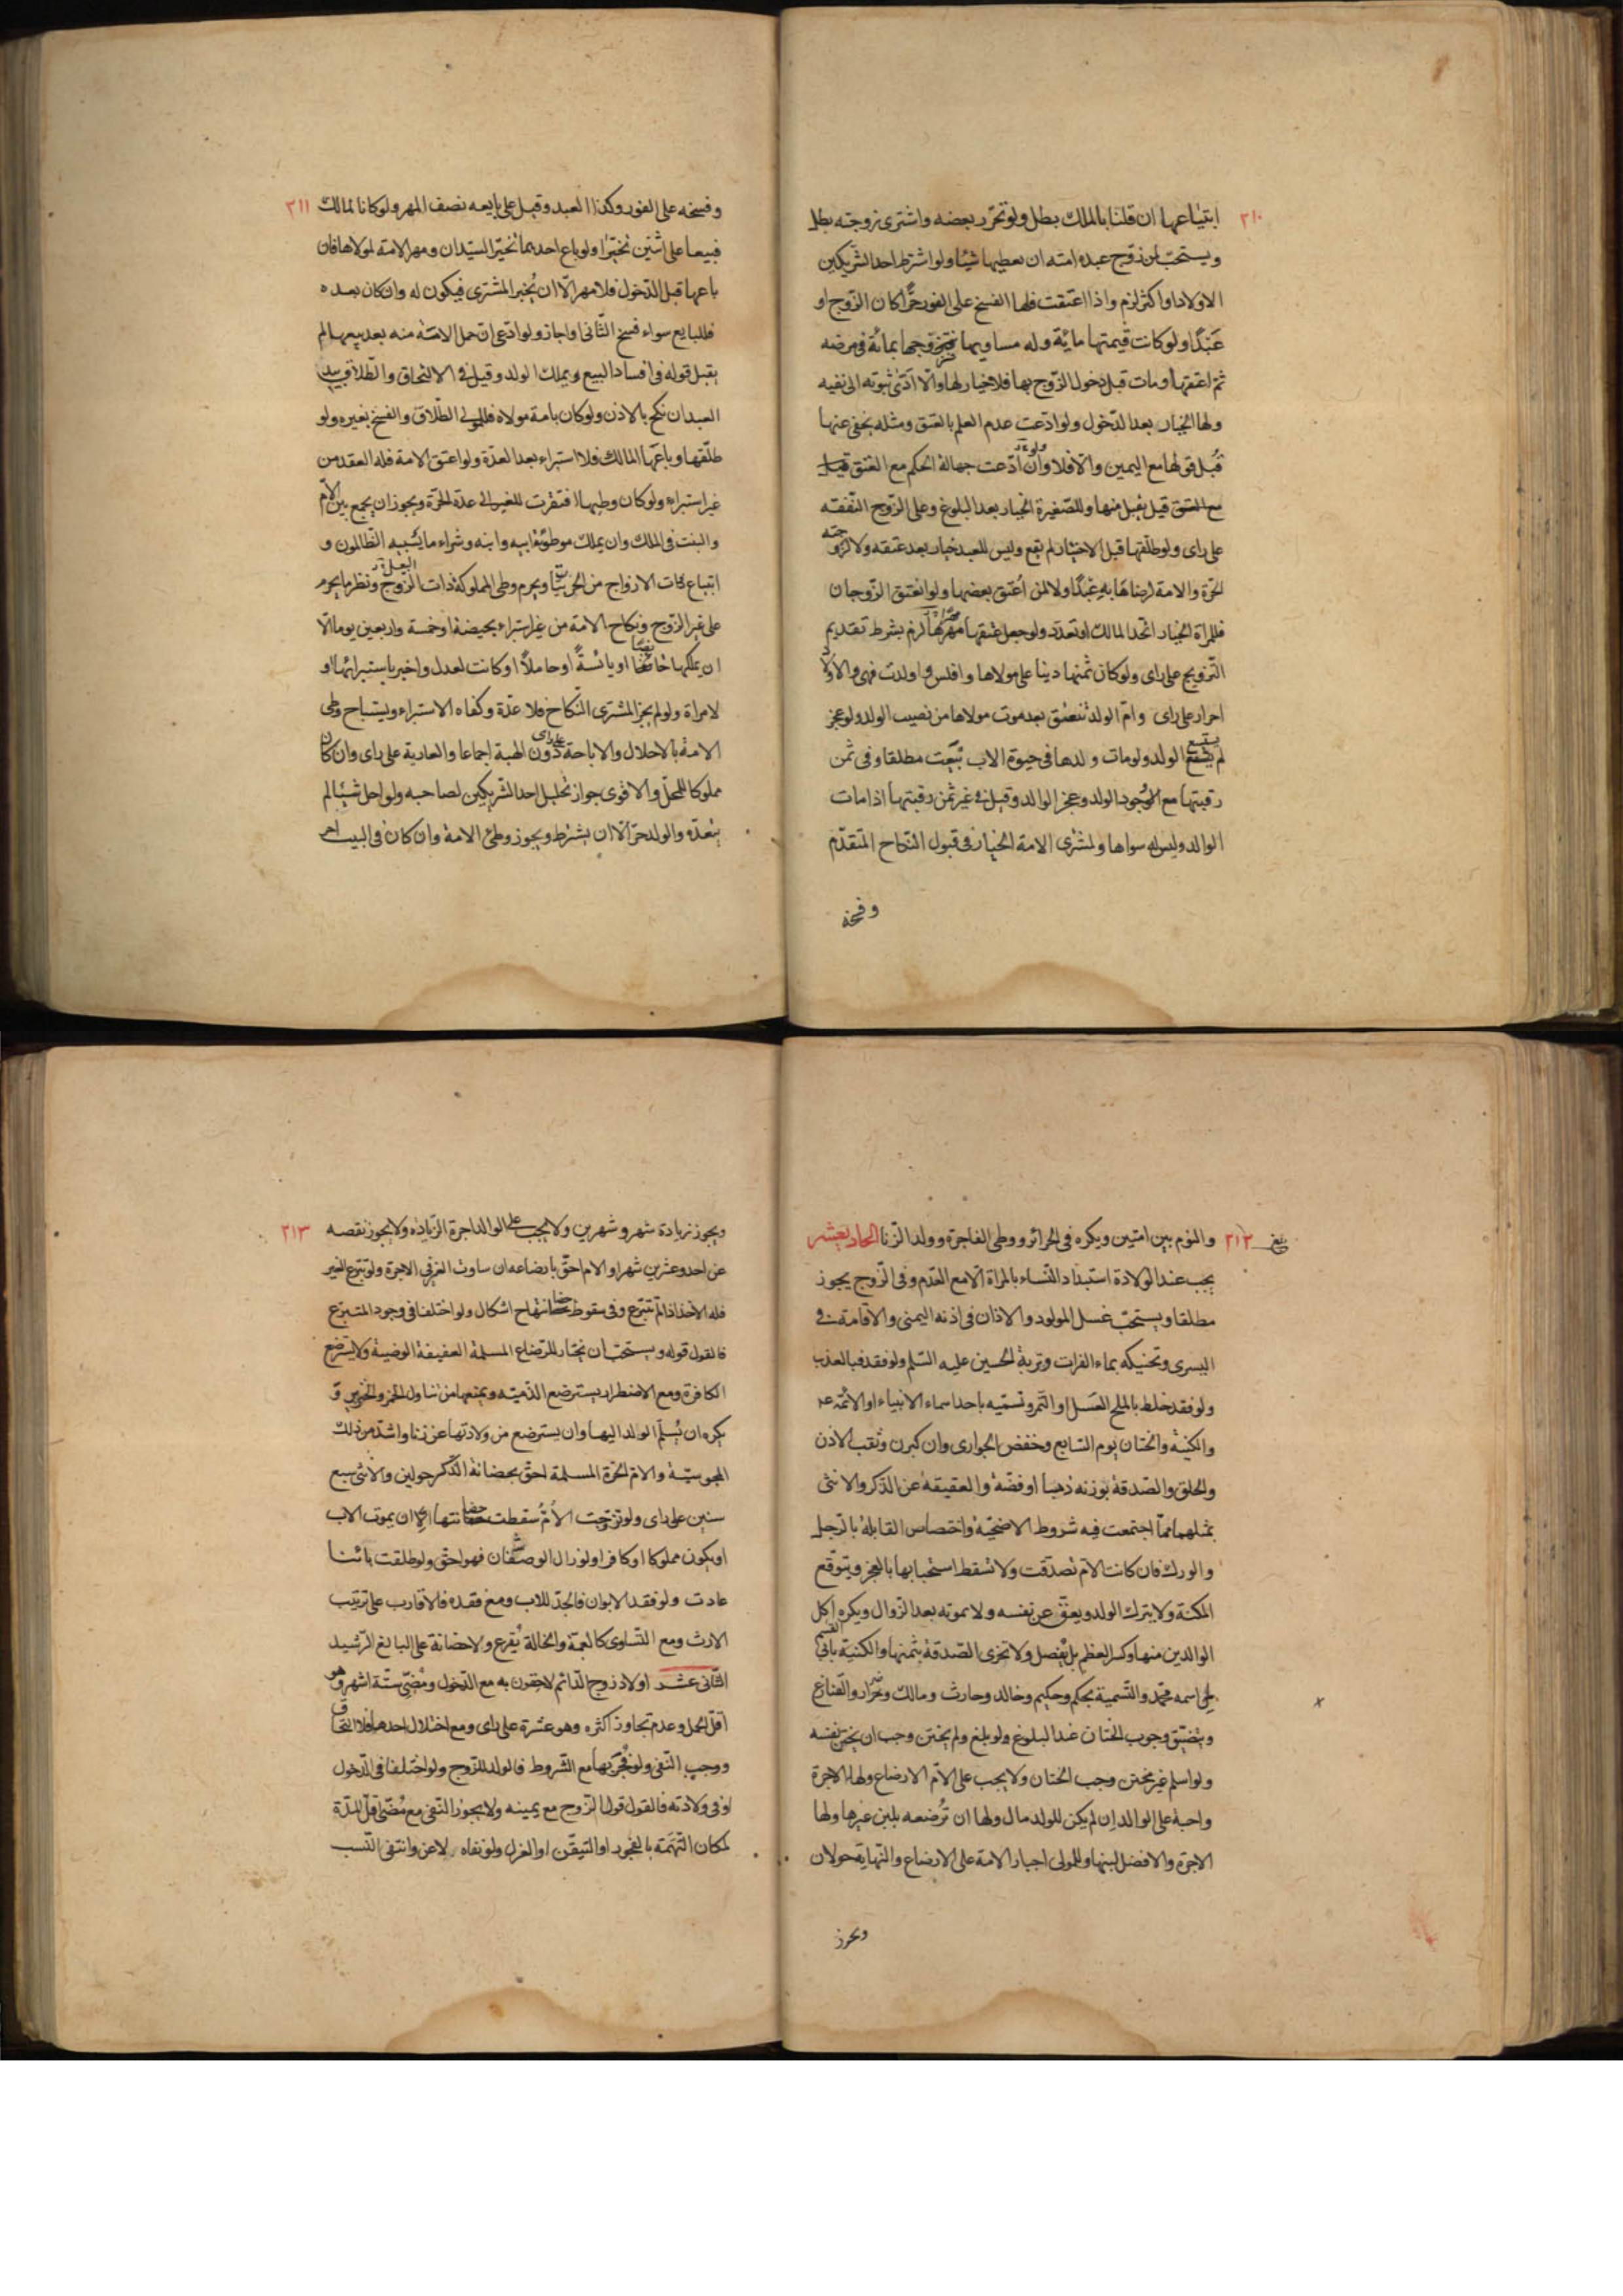 ٢١٠
ابتياعها ان قلنا بالملك بطل ولو تحرّر بعضه واشترى زوجته بطل
ويستحبّ لمن زوّج عبده امته ان يعطيها شيئا ولو اشترط احد الشّريكين
الاولاد او اكثر لزم واذا اعتقت فلها الفسخ على الفور حرًّا كان الزّوج او
عَبْدًا ولو كانت قيمتها مائة وله مساويها فزوجها بمائة فى مرضه
ثمّ اعتقها ومات قبل دخول الزّوج بها فلا خيار لها والّا ادّى ثبوته الى نفيه
ولها الخيار بعد الدّخول ولو ادّعت عدم العلم بالعتق ومثله يخفى عنها
قُبل قولها مع اليمين والّا فلا وان ادّعت جهالة الحكم مع العتق
ولو
مع العتق قيل يقبل منها وللصّغيرة الخيار بعد البلوغ وعلى الزّوج النّفقة
على راى ولو طلّقها قبل الاختيار لم يقع وليس للعبد خيار بعد عتقه ولا لزوجته
الحرّة والامة لرضاها به عَبْدًا ولا لمن اُعتق بعضها ولو انعتق الزّوجان
فللمراة الخيار اتّحد المالك او تعدّد ولو جعل عتقها مهرها لزم بشرط تقديم
التّزويج على راى ولو كان ثمنها دينا على مولاها وافلس و اولدت فهى والاولاد
احرار على راى وامّ الولد تنعتق بعد موت مولاها من نصيب الولد ولو عجز
لم يتبع الولد ولو مات ولدها فى حيوة الاب بيعت مطلقا وفى ثمن
رقبتها مع وجود الولد وعجز الوالد وقيل فى غير ثمن رقبتها اذا مات
الوالد وليس له سواها ولمشترى الامة الخيار فى قبول النّكاح المتقدّم
وفسخه
٢١١
وفسخه على الفور وكذا العبد وقيل على بايعه نصف المهر ولو كانا لمالك
فبيعا على اثنين تخيّرا ولو باع احدهما تخيّر السّيّدان ومهر الامة لمولاها فان
باعها قبل الدّخول فلا مهر الّا ان يُجيز المشترى فيكون له وان كان بعده
فللبايع سواء فسخ الثّانى او اجاز ولو ادّعى انّ حمل الامَة منه بعد بيعها لم
يقبل قوله فى افساد البيع ويملك الولد وقيل فى الالتحاق والطّلاق بيد
العبد ان نكح بالاذن ولو كان بامة مولاه فللمولى الطّلاق والفسخ بغيره ولو
طلّقها وباعها المالك فلا استبراء بعد العدّة ولو اعتق الامة فله العقد من
غير استبراء ولو كان وطيها افتقرت للغير الى عدّة الحرّة ويجوز ان يجمع بين الامّ
والبنت فى الملك وان يملك موطوءة ابيه وابنه وشراء ما يسبيه الظّالمون و
ابتياع ذات الازواج من الحربيّا ويحرم وطى المملوكة ذات الزّوج ونظر ما يحرم
البعل
على غير الزّوج ونكاح الامة من غير استبراء بحيضة او خمسة واربعين يوما الّا
ان يملكها حائضا او يائسةً او حاملًا او كانت لعدل واخبر باستبرائها او
لامراة ولو لم يجز المشترى النّكاح فلا عدّة وكفاه الاستراء ويستباح وطى
الامة بالاحلال والاباحة على راى دون الهبة اجماعا والعارية على راى وان كان
مملوكا للمحلّ والاقوى جواز تحليل احد الشّريكين لصاحبه ولو احل شيئا لم
يتعدّه والولد حرّ الّا ان يشترط ويجوز وطئ الامة وان كان فى البيت اخر
٢١٢
والنوم بين امتين ويكره فى الحرائر ووطى الفاجرة وولد الزّنا الحاديعشر
يجب عند الولادة استبداد النّساء بالمراة الّا مع العدم وفى الزّوج يجوز
مطلقا ويستحبّ غسل المولود والاذان فى اذنه اليمنى والاقامة فى
اليسرى وتحنيكه بماء الفرات وتربة الحسين عليه السّلم ولو فقد فبالعذب
ولو فقد خلط بالملح العَسَل او التّمر وتسميه باحد اسماء الانبياء او الائمّة عم
والكنية والختان يوم السّابع وخفض الجوارى وان كبرن وثقب الاذن
والحلق والصّدقة بوزنه ذهبا او فضّة والعقيقة عن الذّكر والانثى
بمثلهما ممّا اجتمعت فيه شروط الاضحيّة واختصاص القابلة بالرّجل
والورك فان كانت الامّ تصدّقت ولا تسقط استحبابها بالعجز ويتوقّع
المكنة ولا يترك الولد ويعقّ عن نفسه ولا بموته بعد الزّوال ويكره اكل
الوالدين منها وكسر العظم بل يفصل ولا تجزى الصّدقة بثمنها والكنية بابى القسم
لمن اسمه محمّد والتّسمية بحكم وحكيم وخالد وحارث ومالك وضرار والقنازع
ويتضيّق وجوب الختان عند البلوغ ولو بلغ ولم يختن وجب ان يختن نفسه
ولو اسلم غير مختن وجب الختان ولا يجب على الامّ الارضاع ولها الاجرة
واجبة على الوالد ان لم يكن للولد مال ولها ان تُرضعه بلبن غيرها ولها
الاجرة والافضل لبنها وللمولى اجبار الامة على الارضاع والنّهاية حولان
ويجوز
٢١٣
ويجوز زيادة شهر وشهرين ولا يجب على الوالد اجرة الزّيادة ولا يجوز نقصه
عن احد وعشرين شهرا والام احقّ بارضاعه ان ساوت الغير فى الاجرة ولو تبرّع الغير
فله الاخذ اذا لم تتبرّع وفى سقوط حضانتها ح اشكال ولو اختلفا فى وجود المتبرّع
فالقول قوله ويستحبّ ان يختار للرّضاع المسلمة العفيفة الوضيئة ولا يسترضع
الكافرة ومع الاضطرار يسترضع الذّميّة ويمنعها من تناول الخمر والخنزير و
يكره ان يُسلّم الولد اليها وان يسترضع من ولادتها عن زنا واشدّ من ذلك
المجوسيّة والامّ الحرّة المسلمة احقّ بحضانة الذّكر حولين والانثى سبع
سنين على راى ولو تزوّجت الاُمّ سقطت حضانتها الا ان يموت الاب
او يكون مملوكا او كافرا ولو زال الوصفان فهو احقّ ولو طلقت بائنا
عادت ولو فقد الابوان فالجدّ للاب ومع فقده فالاقارب على ترتيب
الارث ومع التّساوى كالعمّة والخالة يُقرع ولا حضانة على البالغ الرّشيد
الثّانى عشر اولاد زوج الدّائم لاحقون به مع الدّخول ومُضىّ ستّة اشهر وهو
اقلّ الحمل وعدم تجاوز اكثره وهو عشرة على راى ومع اختلال احدها فلا التحاق
ووجب النّفى ولو فُجِرَ بها مع الشّروط فالولد للزّوج ولو اختلفا فى الدّخول
او فى ولادته فالقول قول الزّوج مع يمينه ولا يجوز النّفى مع مُضىّ اقلّ المدّة
لمكان التّهَمَة بالفجور او التّيقّن او العزل ولو نفاه لاعن وانتفى النّسب